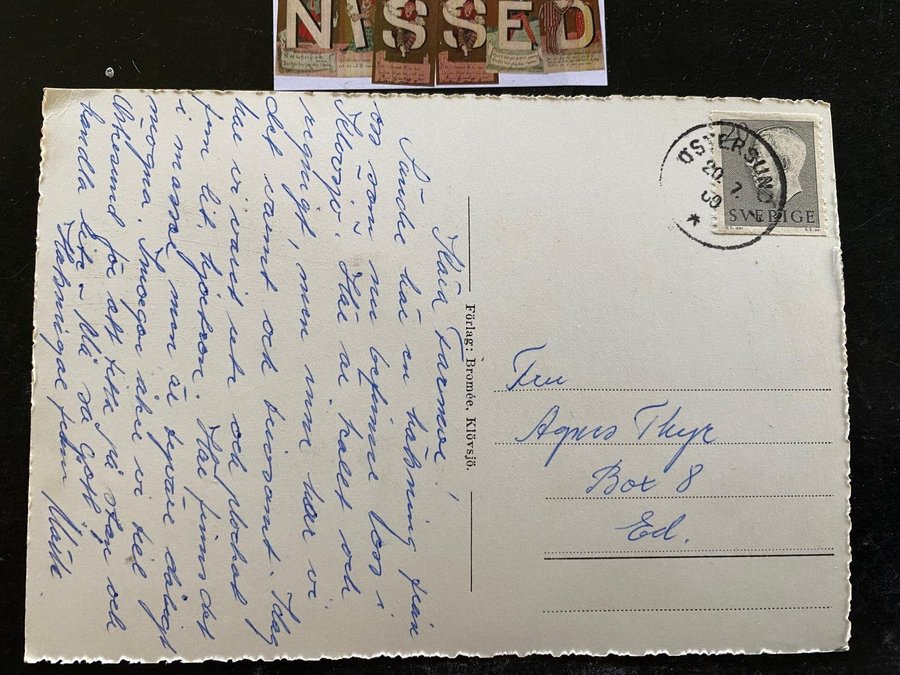 NISSED
ÖSTERSUND
20. 7.
60
SVERIGE
Kära Farmor!
Sände här en hälsning från
oss som nu befinner oss i
Klövsjö. Här är kallt och
regnigt, men inne har vi
det varmt och trivsamt. Idag
har vi varit ute och plockat
fem lit. hjortron. Här finns det
i massor men är tyvärr dåligt
mogna. Imorgon åker vi till
Östersund för att titta på stan och
handla lite. Må så gott!
Hälsningar från
Förlag: Bromée, Klövsjö.
Fru
Agnes Thyr
Box 8
Ed.